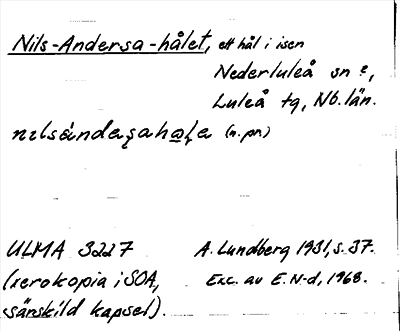 Nils-Andersa-hålet, ett hål i isen
Nederluleå sn ?,
Luleå tg, Nb. län.
(n. pr.)
ULMA 3227 A. Lundberg 1931, s. 37.
(xerokopia i SOA, Exc. av E. N-d, 1968.
särskild kapsel).